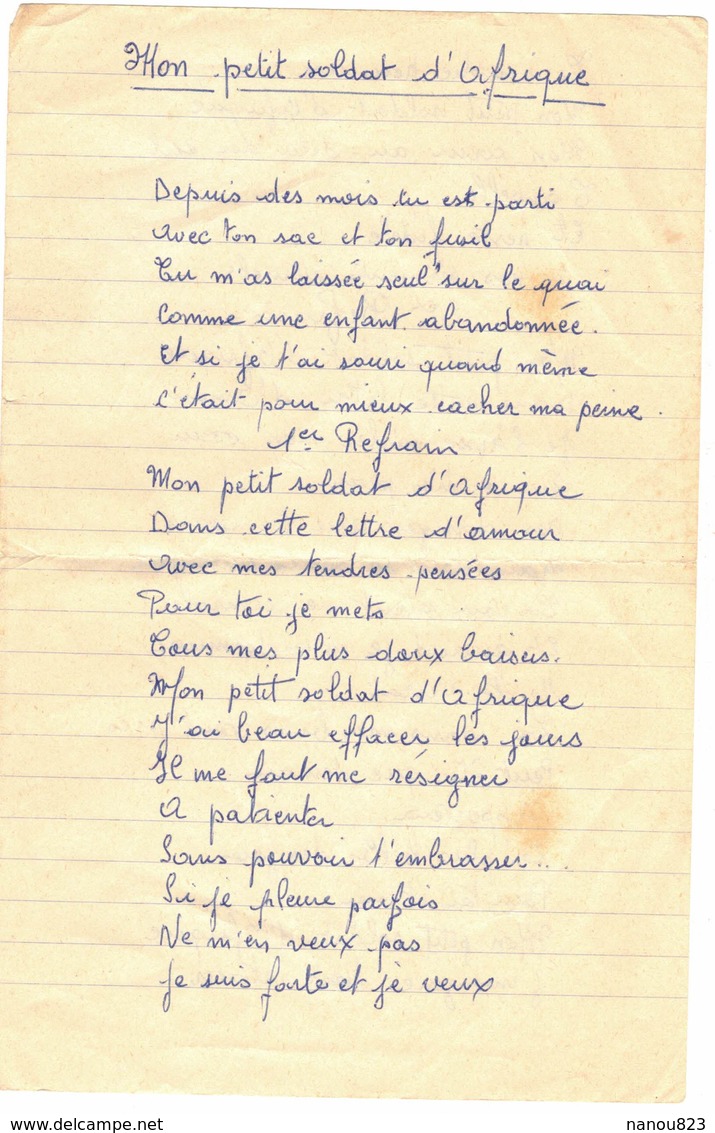 Mon petit soldat d'Afrique
Depuis des mois tu est parti
Avec ton sac et ton fusil
Tu m'as laissée seul" sur le quai
Comme une enfant abandonnée.
Et si je t'ai souri quand même
C'était pour mieux cacher ma peine.
1er Refrain
Mon petit soldat d'Afrique
Dans cette lettre d'amour
Avec mes tendres pensées
Pour toi je mets
Tous mes plus doux baisers.
Mon petit soldat d'Afrique
J'ai beau effacer les jours
Il me faut me résigner
A patienter
Sans pouvoir t'embrasser...
Si je pleure parfois
Ne m'en veux pas
Je suis forte et je veux
www.delcampe.net
nanou823